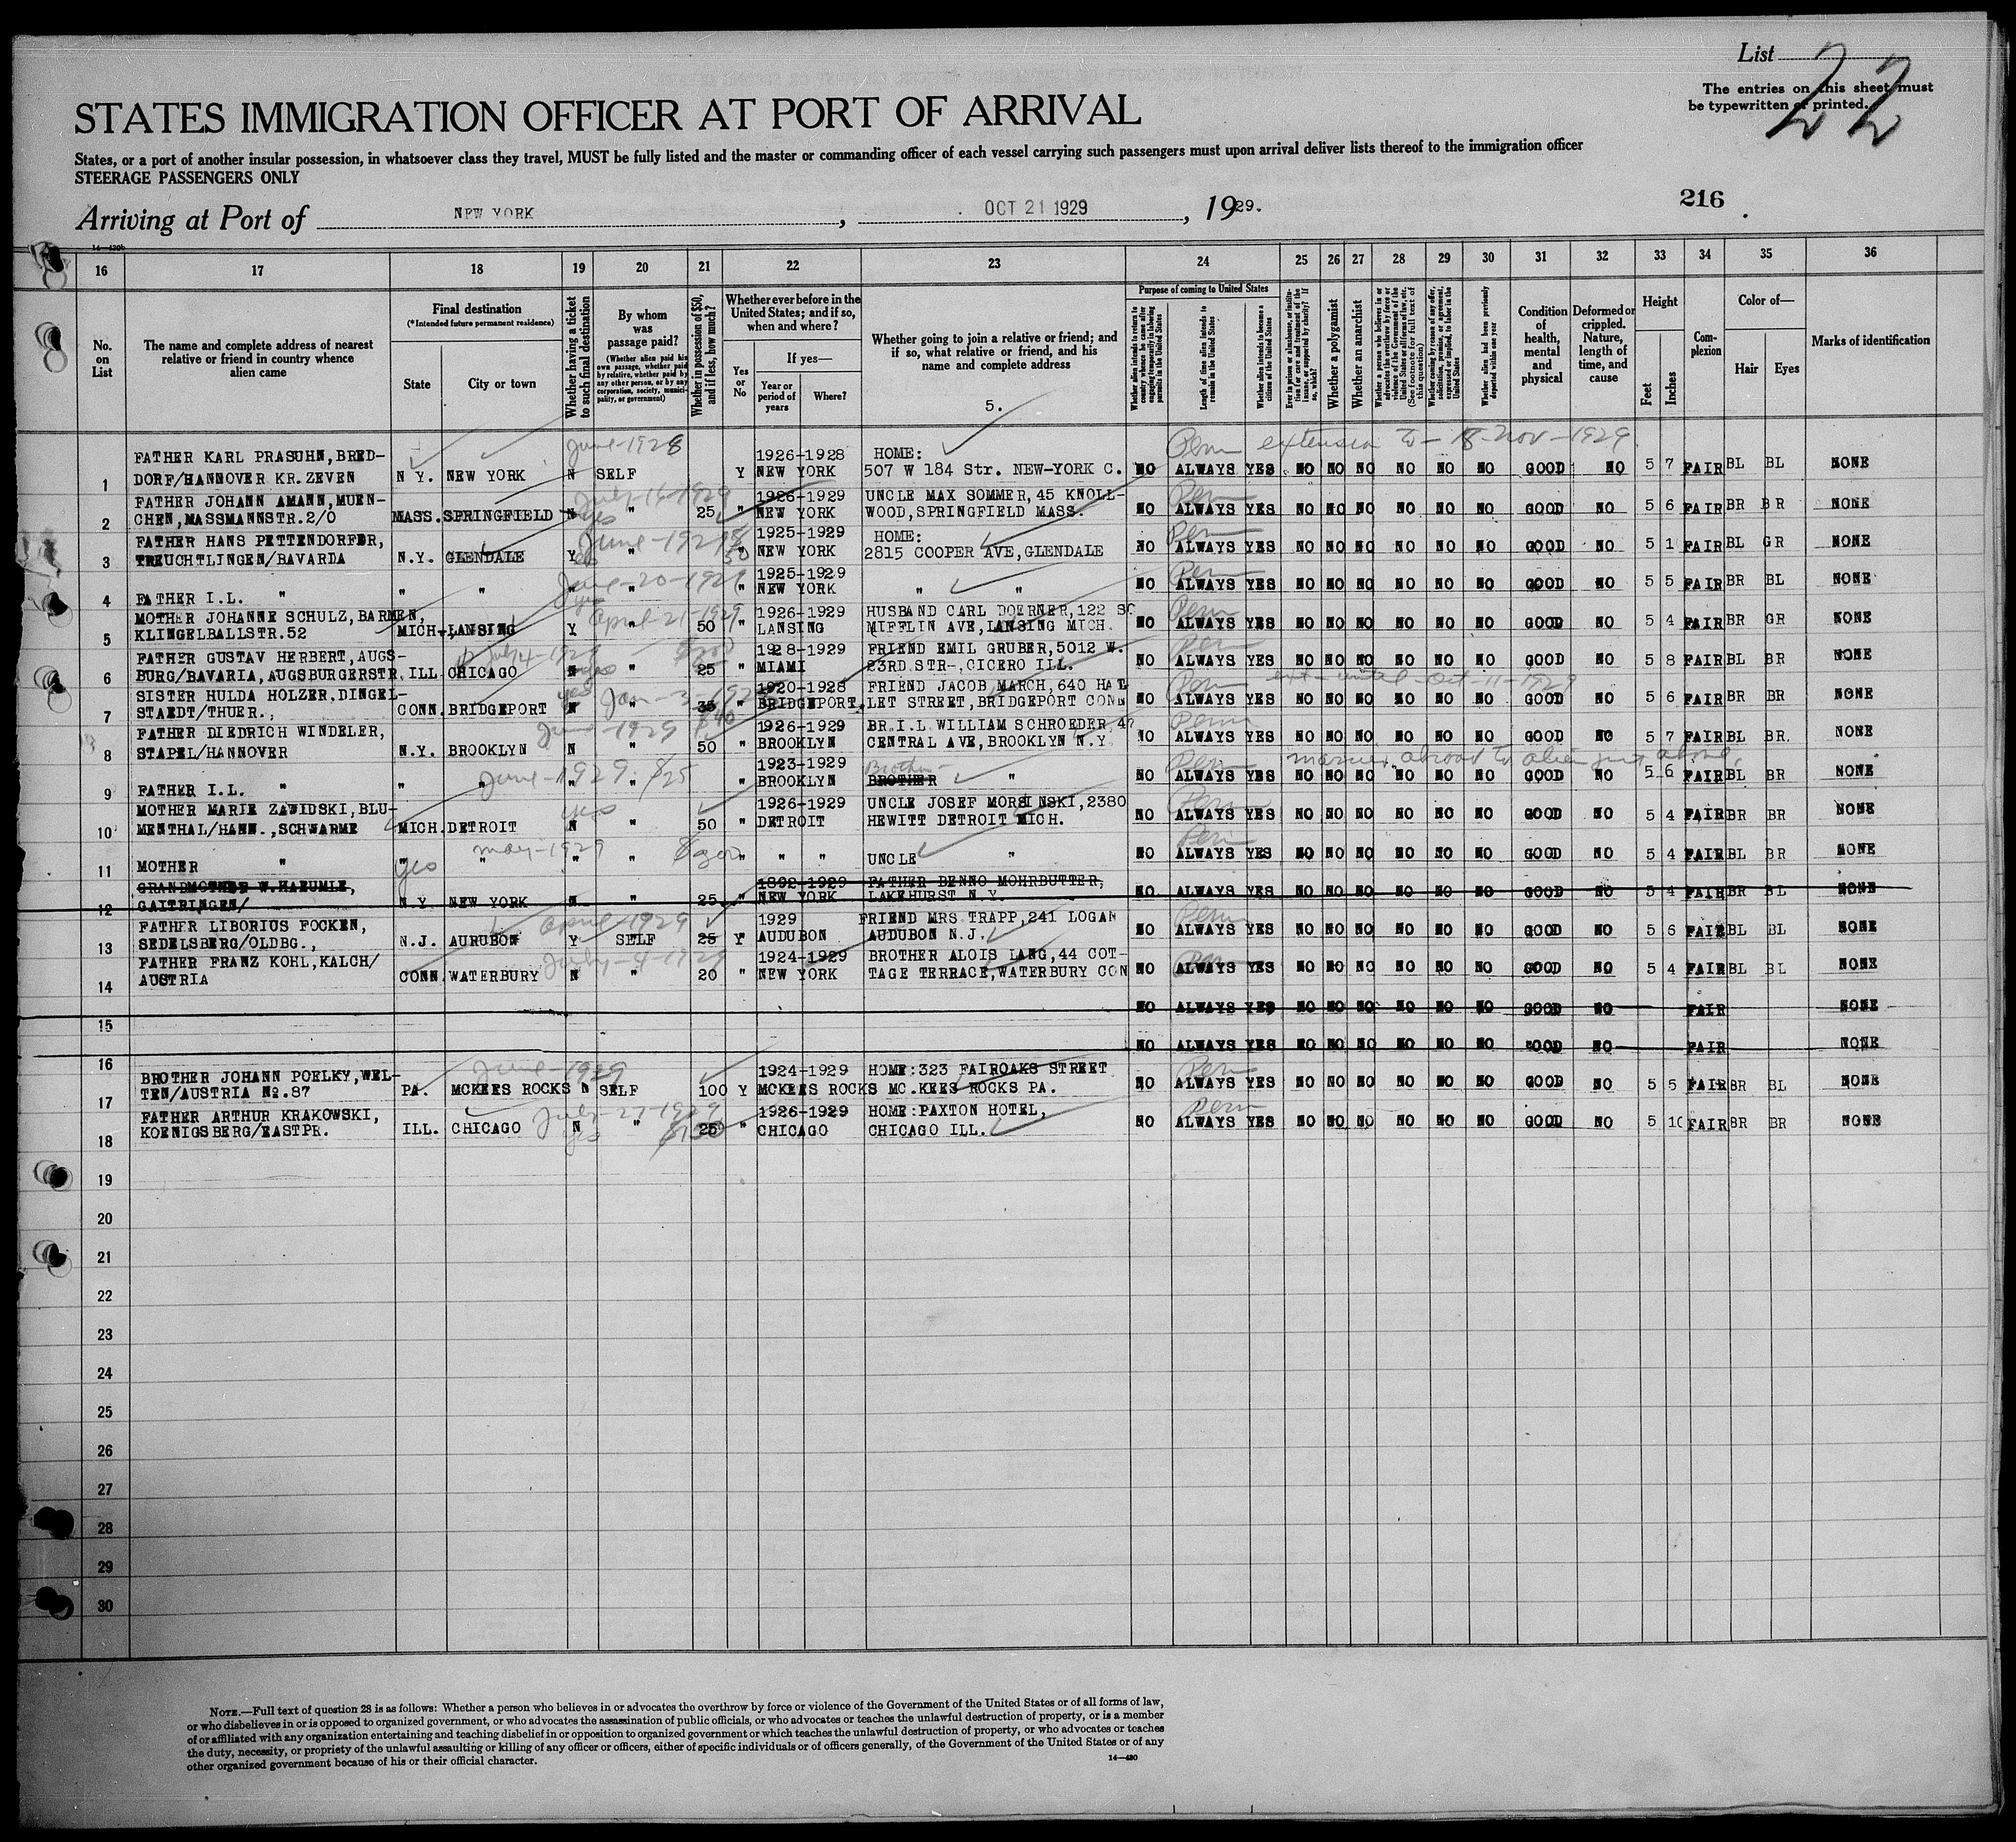 List 22
The entries on this sheet must
be typewritten or printed.
STATES IMMIGRATION OFFICER AT PORT OF ARRIVAL
States, or a port of another insular possession, in whatsoever class they travel, MUST be fully listed and the master or commanding officer of each vessel carrying such passengers must upon arrival deliver lists thereof to the immigration officer
STEERAGE PASSENGERS ONLY
216
Arriving at Port of NEW YORK, OCT 21 1929, 1929.
14—430b
16 17 18 19 20 21 22 23 24 25 26 27 28 29 30 31 32 33 34 35 36
No. on List
The name and complete address of nearest relative or friend in country whence alien came
Final destination
(*Intended future permanent residence)
State
City or town
Whether having a ticket to such final destination
By whom was passage paid?
(Whether alien paid his own passage, whether paid by relative, whether paid by any other person, or by any corporation, society, municipality, or government)
Whether in possession of $50, and if less, how much?
Whether ever before in the United States; and if so, when and where?
Yes or No
If yes—
Year or period of years
Where?
Whether going to join a relative or friend; and if so, what relative or friend, and his name and complete address
5.
Purpose of coming to United States
Whether alien intends to return to country whence he came after engaging temporarily in laboring pursuits in the United States
Length of time alien intends to remain in the United States
Whether alien intends to become a citizen of the United States
Ever in prison or almshouse, or institution for care and treatment of the insane, or supported by charity? If so, which?
Whether a polygamist
Whether an anarchist
Whether a person who believes in or advocates the overthrow by force or violence of the Government of the United States or all forms of law, etc. (See footnote for full text of this question)
Whether coming by reason of any offer, solicitation, promise, or agreement, expressed or implied, to labor in the United States
Whether alien had been previously deported within one year
Condition of health, mental and physical
Deformed or crippled. Nature, length of time, and cause
Height
Feet
Inches
Complexion
Color of—
Hair
Eyes
Marks of identification
June-1928 Perm extension to - 18-Nov-1929
FATHER KARL PRASUHN, BRED- 1926-1928 HOME:
1 DORF/HANNOVER KR.ZEVEN N Y. NEW YORK N SELF Y NEW YORK 507 W 184 Str. NEW-YORK C. NO ALWAYS YES NO NO NO NO NO NO GOOD NO 5 7 FAIR BL BL NONE
July-16-1929 Perm
FATHER JOHANN AMANN, MUEN- 1926-1929 UNCLE MAX SOMMER, 45 KNOLL-
2 CHEN, MASSMANNSTR.2/0 MASS. SPRINGFIELD N yes " 25 " NEW YORK WOOD, SPRINGFIELD MASS. NO ALWAYS YES NO NO NO NO NO NO GOOD NO 5 6 FAIR BR BR NONE
Perm
FATHER HANS PETTENDORFER, 1925-1929 HOME:
3 TREUCHTLINGEN/BAVARDA N.Y. GLENDALE Y " 50 " NEW YORK 2815 COOPER AVE, GLENDALE NO ALWAYS YES NO NO NO NO NO NO GOOD NO 5 1 FAIR BL GR NONE
June-20-1929 Perm
1925-1929
4 FATHER I.L. " " " yes " " NEW YORK " " NO ALWAYS YES NO NO NO NO NO NO GOOD NO 5 5 FAIR BR BL NONE
April-21-1929 Perm
MOTHER JOHANNE SCHULZ, BARMEN, 1926-1929 HUSBAND CARL DOERNER, 122 SO
5 KLINGELBALLSTR.52 MICH. LANSING Y " 50 " LANSING MIFFLIN AVE, LANSING MICH. NO ALWAYS YES NO NO NO NO NO NO GOOD NO 5 4 FAIR BR GR NONE
Perm
FATHER GUSTAV HERBERT, AUGS- 1928-1929 FRIEND EMIL GRUBER, 5012 W.
6 BURG/BAVARIA, AUGSBURGERSTR. ILL CHICAGO N yes " 25 " MIAMI 23RD.STR-, CICERO ILL. NO ALWAYS YES NO NO NO NO NO NO GOOD NO 5 8 FAIR BL BR NONE
Perm ext-until-Oct-11-1929
SISTER HULDA HOLZER, DINGEL- 1920-1928 FRIEND JACOB MARCH, 640 HAL
7 STAEDT/THUER., CONN. BRIDGEPORT N yes " 35 " BRIDGEPORT. LET STREET, BRIDGEPORT CONN NO ALWAYS YES NO NO NO NO NO NO GOOD NO 5 6 FAIR BR BR NONE
June-1929 $40 Perm
FATHER DIEDRICH WINDELER, 1926-1929 BR.I.L WILLIAM SCHROEDER 47
8 STAPEL/HANNOVER N.Y. BROOKLYN N " 50 " BROOKLYN CENTRAL AVE, BROOKLYN N.Y. NO ALWAYS YES NO NO NO NO NO NO GOOD NO 5 7 FAIR BL BR. NONE
June-1929 $25 Perm married abroad to alien just above.
1923-1929 Brother-
9 FATHER I.L. " " " " " " BROOKLYN BROTHER " NO ALWAYS YES NO NO NO NO NO NO GOOD NO 5 6 FAIR BL BR NONE
yes Perm
MOTHER MARIE ZAWIDSKI, BLU- 1926-1929 UNCLE JOSEF MORSINSKI, 2380
10 MENTHAL/HANN., SCHWARME MICH. DETROIT N " 50 " DETROIT HEWITT DETROIT MICH. NO ALWAYS YES NO NO NO NO NO NO GOOD NO 5 4 FAIR BR BR NONE
May-1929 $200 Perm
11 MOTHER " " yes " " " " " " UNCLE " NO ALWAYS YES NO NO NO NO NO NO GOOD NO 5 4 FAIR BL BR NONE
GRANDMOTHER W.HAEUMLE, 1892-1929 FATHER BENNO MOHRBUTTER,
12 GAITRINGEN/ N.Y. NEW YORK N " 25 " NEW YORK LAKEHURST N.Y. NO ALWAYS YES NO NO NO NO NO NO GOOD NO 5 4 FAIR BR BL NONE
April-1929 Perm
FATHER LIBORIUS FOCKEN, 1929 FRIEND MRS TRAPP, 241 LOGAN
13 SEDELSBERG/OLDBG., N.J. AURUBON Y SELF 25 Y AUDUBON AUDUBON N.J. NO ALWAYS YES NO NO NO NO NO NO GOOD NO 5 6 FAIR BL BL NONE
July-4-1929 Perm
FATHER FRANZ KOHL, KALCH/ 1924-1929 BROTHER ALOIS LANG, 44 COT-
14 AUSTRIA CONN. WATERBURY N " 20 " NEW YORK TAGE TERRACE, WATERBURY CON NO ALWAYS YES NO NO NO NO NO NO GOOD NO 5 4 FAIR BL BL NONE
15 NO ALWAYS YES NO NO NO NO NO NO GOOD NO FAIR NONE
16 NO ALWAYS YES NO NO NO NO NO NO GOOD NO FAIR NONE
June-1929 Perm
BROTHER JOHANN POELKY, WEL- 1924-1929 HOME:323 FAIROAKS STREET
17 TEN/AUSTRIA No.87 PA. MCKEES ROCKS N SELF 100 Y MCKEES ROCKS MC.KEES ROCKS PA. NO ALWAYS YES NO NO NO NO NO NO GOOD NO 5 5 FAIR BR BL NONE
July-27-1929 Perm
FATHER ARTHUR KRAKOWSKI, 1926-1929 HOME:PAXTON HOTEL,
18 KOENIGSBERG/EASTPR. ILL. CHICAGO N yes " 25 " CHICAGO CHICAGO ILL. NO ALWAYS YES NO NO NO NO NO NO GOOD NO 5 10 FAIR BR BR NONE
19
20
21
22
23
24
25
26
27
28
29
30
NOTE.—Full text of question 28 is as follows: Whether a person who believes in or advocates the overthrow by force or violence of the Government of the United States or of all forms of law,
or who disbelieves in or is opposed to organized government, or who advocates the assassination of public officials, or who advocates or teaches the unlawful destruction of property, or is a member
of or affiliated with any organization entertaining and teaching disbelief in or opposition to organized government or which teaches the unlawful destruction of property, or who advocates or teaches
the duty, necessity, or propriety of the unlawful assaulting or killing of any officer or officers, either of specific individuals or of officers generally, of the Government of the United States or of any
other organized government because of his or their official character.
14—430